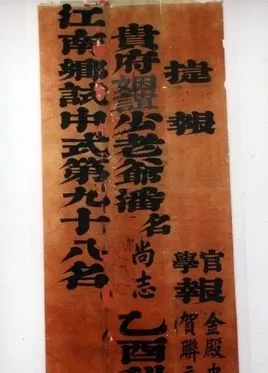 捷報
貴府姻誼少老爺潘名尚志乙酉科
江南鄉試中式第九十八名
官學報
金殿
賀聯